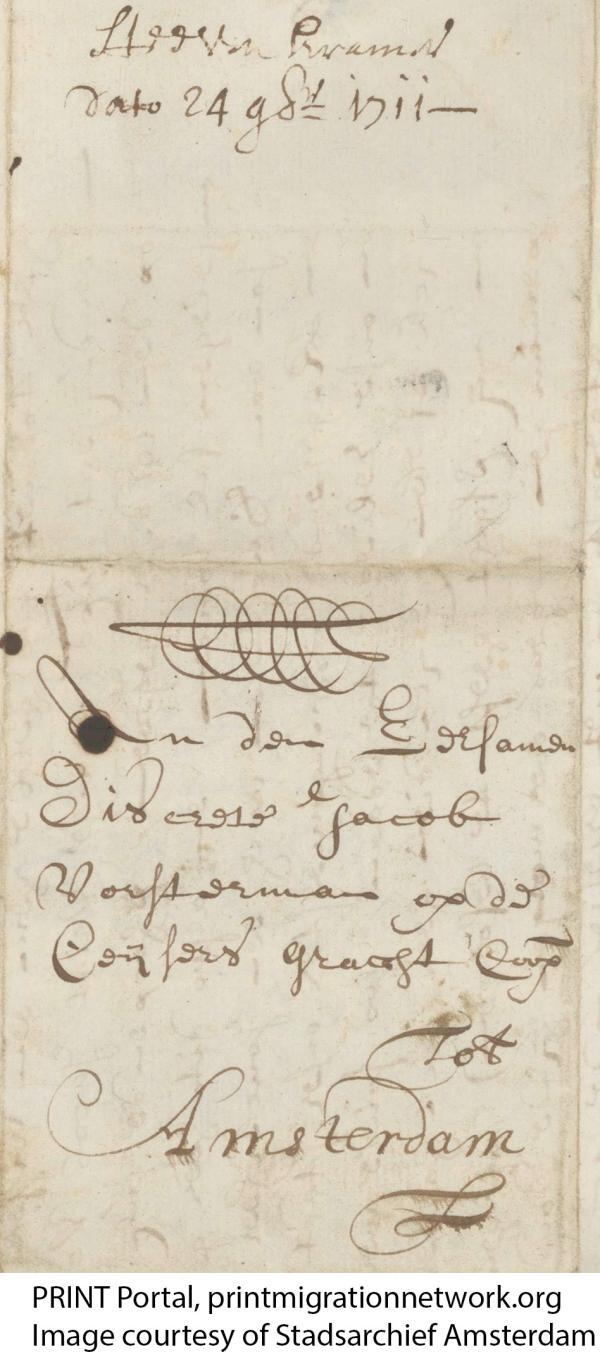 Steven Kramer
dato 24 9br 1711
An den Eersamen
Discrete Jacob
Vorsterman op de
Ceijsers gracht Coop
Tot
Amsterdam
PRINT Portal, printmigrationnetwork.org
Image courtesy of Stadsarchief Amsterdam